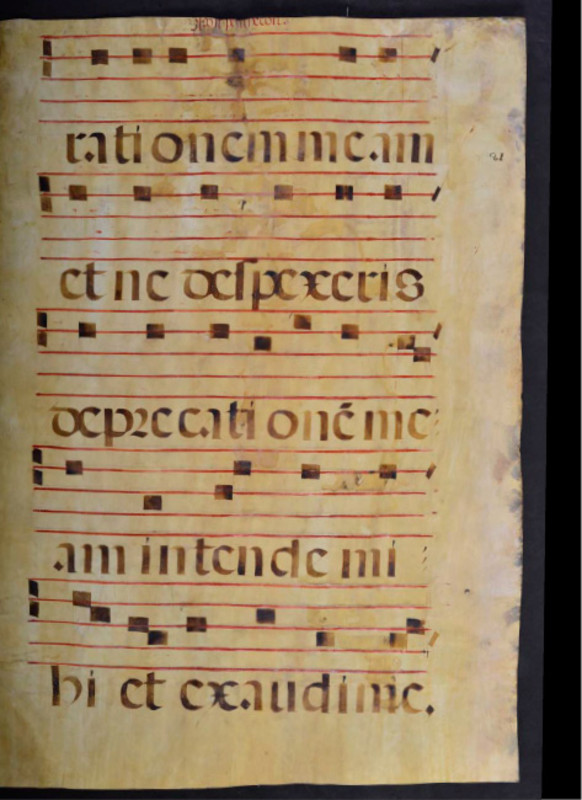 rationem meam
et ne despexeris
deprecationē me
am intende mi
hi et exaudi me.